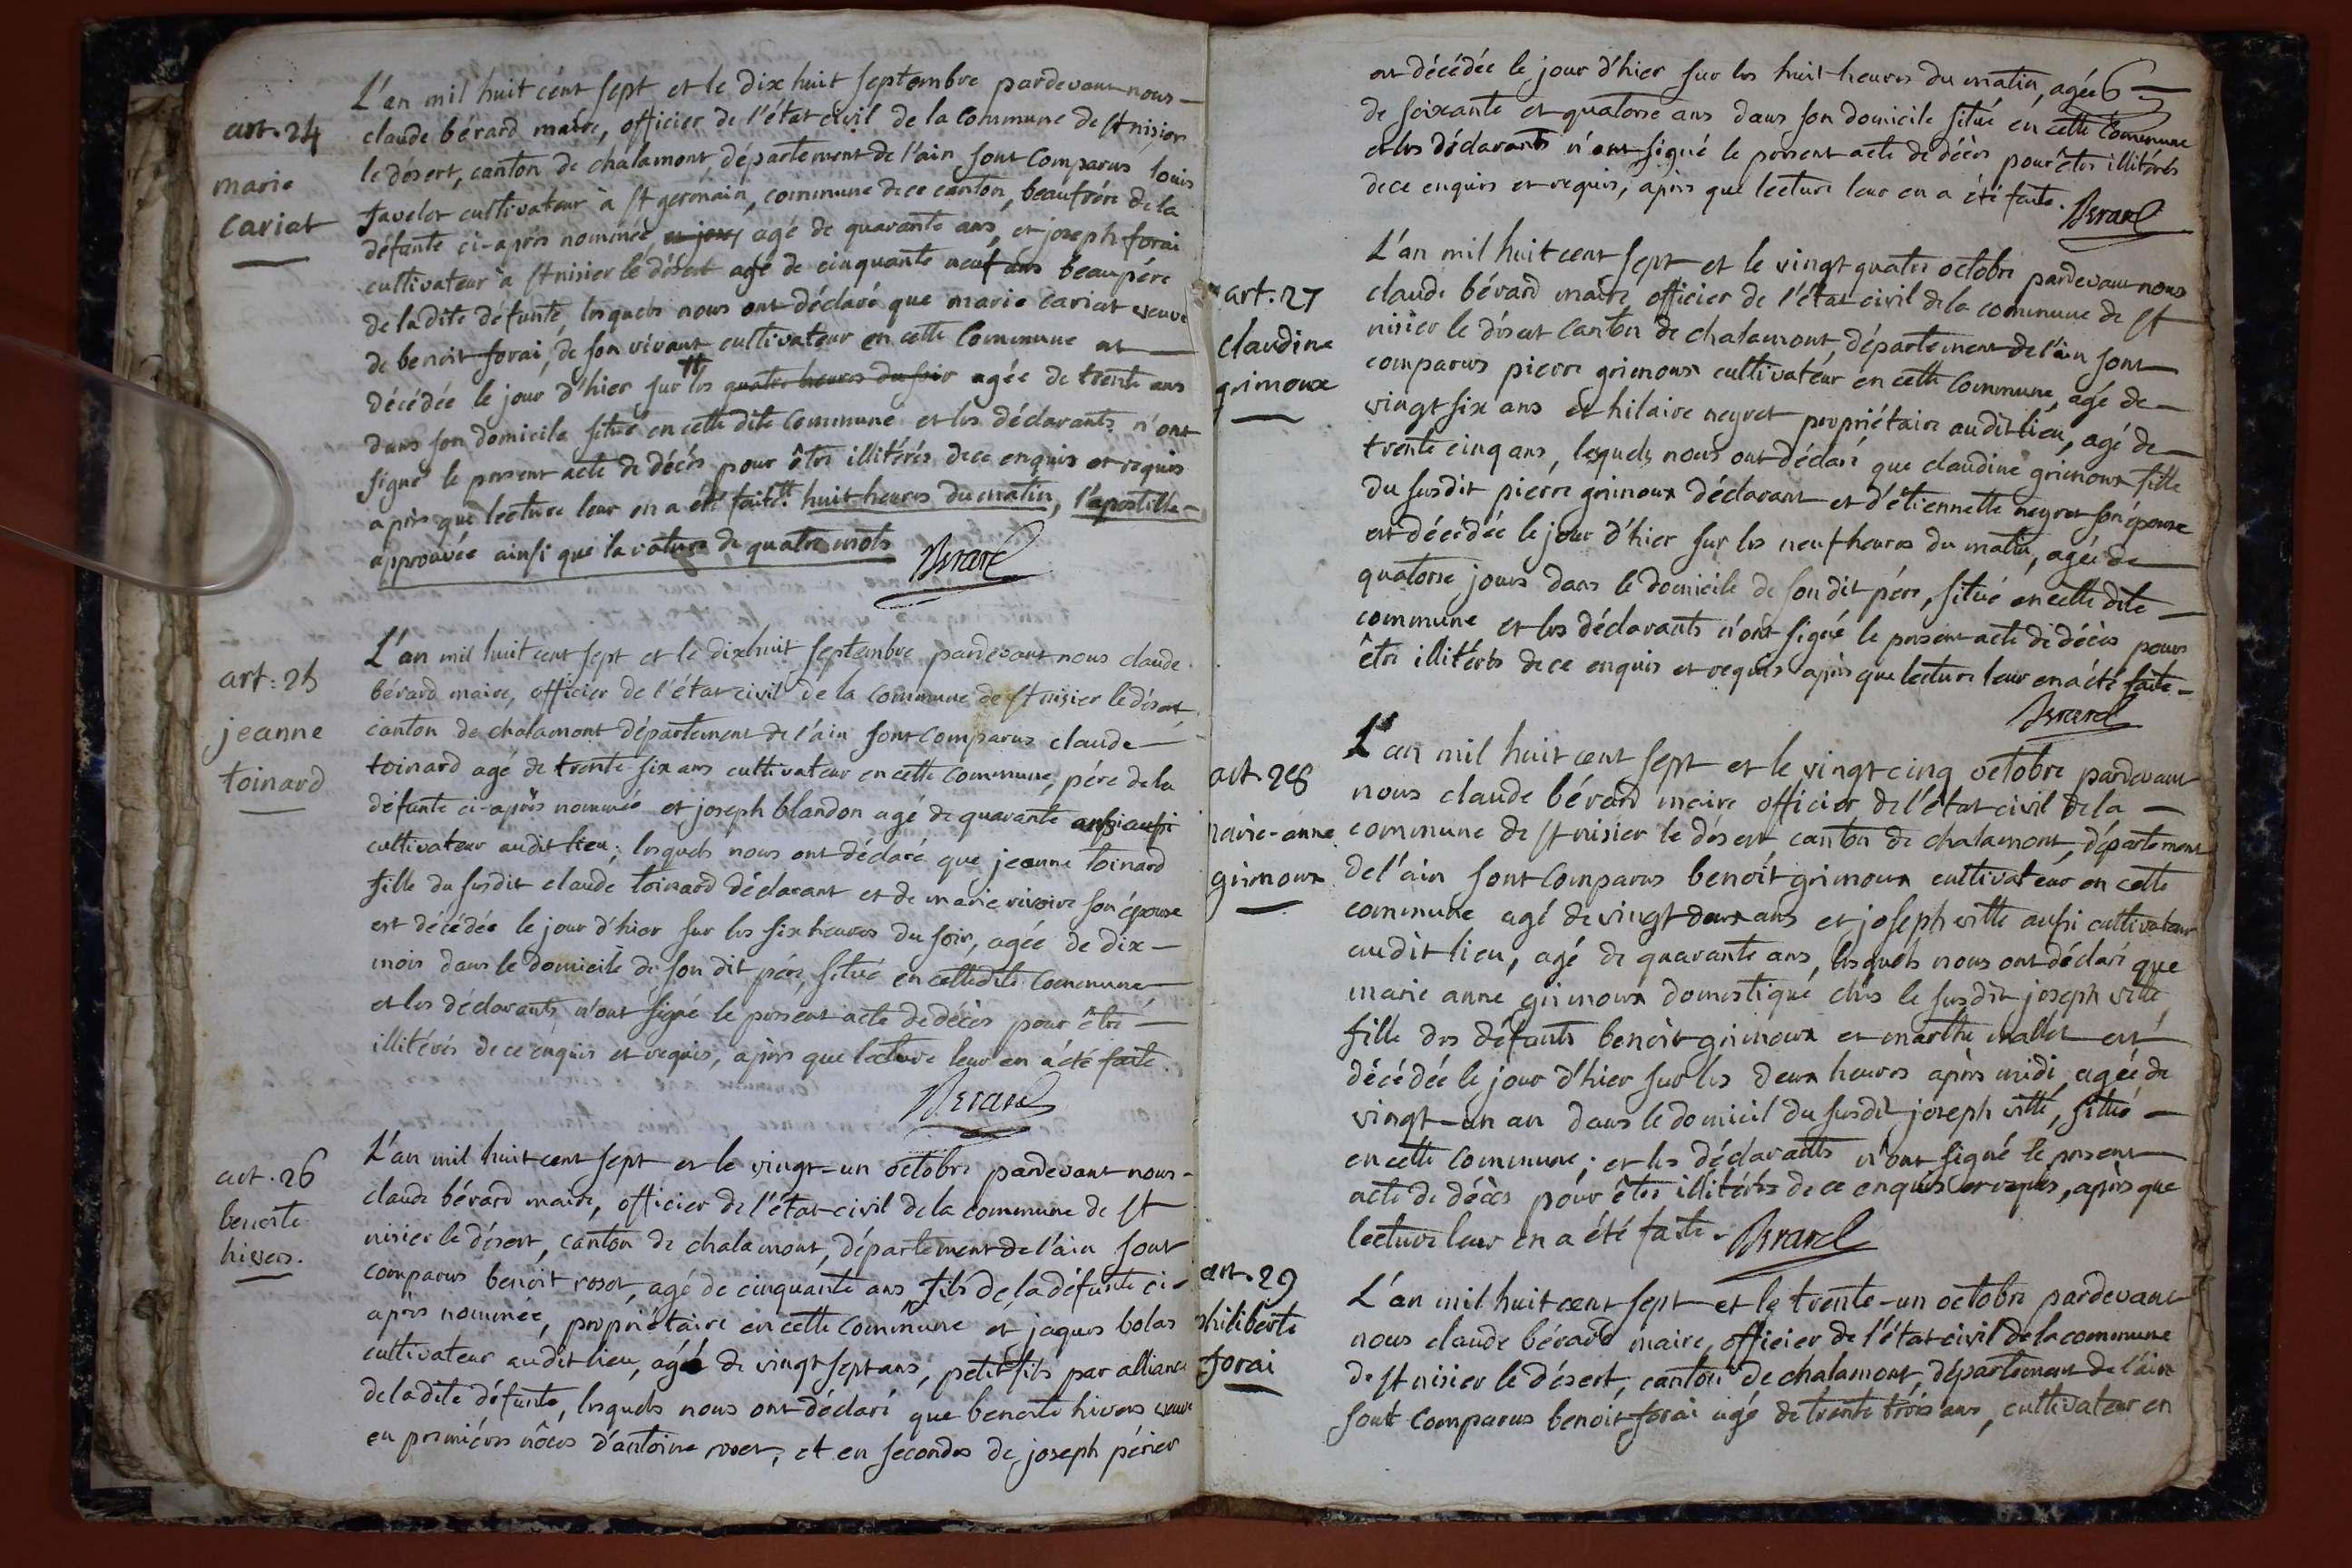 art. 24
marie
cariat
L'an mil huit cent sept et le dix huit septembre pardevant nous
claude bérard maire, officier de l'état civil de la Commune de st nisier
le désert, canton de chalamont, département de l'ain sont Comparus louis
favelot cultivateur à st germain, commune de ce canton, beaufrére de la
défunte ci-après nommée, et jose, agé de quarante ans, et joseph forai
cultivateur à st nisier le désert agé de cinquante neuf ans beaupére
de la dite défunte, lesquels nous ont déclaré que marie cariat veuve
de benoit forai, de son vivant cultivateur en cette Commune est
décédée le jour d'hier sur les # quatre heures du soir agée de trente ans
dans son domicile situé en cette dite Commune et les déclarants n'ont
signé le present acte de décès pour être illitérés de ce enquis et requis
après que lecture leur en a été faite. # huit heures du matin, l'apostille
approuvée ainsi que la rature de quatre mots
Berard
art: 25
jeanne
toinard
L'an mil huit cent sept et le dixhuit septembre pardevant nous claude
bérard maire, officier de l'état civil de la Commune de st nisier le désert,
canton de chalamont département de l'ain sont Comparus claude
toinard agé de trente six ans cultivateur en cette Commune, pére de la
défunte ci-après nommée et joseph blandon agé de quarante ans aussi
cultivateur audit lieu; lesquels nous ont déclaré que jeanne toinard
fille du susdit claude toinard déclarant et de marie rivoire son épouse
est décédée le jour d'hier sur les six heures du soir, agée de dix
mois dans le domicile de son dit pére, situé en cette dite Commune
et les déclarants n'ont signé le present acte de décès pour être
illitérés de ce enquis et requis, après que lecture leur en a été faite.
Berard
art. 26
benoite
hivers.
L'an mil huit cent sept et le vingt-un octobre pardevant nous
claude bérard maire, officier de l'état civil de la commune de st
nisier le désert, canton de chalamont, département de l'ain sont
comparus benoit roset, agé de cinquante ans fils de la défunte ci-
après nommée, propriétaire en cette Commune et jaques bolas
cultivateur audit lieu, agé de vingt sept ans, petit fils par alliance
de la dite défunte, lesquels nous ont déclaré que benoite hivers veuve
en premiéres nôces d'antoine roset, et en secondes de joseph périer
6
est décédée le jour d'hier sur les huit heures du matin, agée
de soixante et quatorse ans dans son domicile situé en cette Commune
et les déclarants n'ont signé le present acte de décès pour être illitérés
de ce enquis et requis, après que lecture leur en a été faite.
Berard
art. 27
claudine
grimoux
L'an mil huit cent sept et le vingt quatre octobre pardevant nous
claude bérard maire officier de l'état civil de la commune de st
nisier le désert Canton de chalamont, département de l'ain sont
comparus pierre grimoux cultivateur en cette Commune, agé de
vingt six ans et hilaire neyret propriétaire audit lieu, agé de
trente cinq ans, lesquels nous ont déclaré que claudine grimoux fille
du susdit pierre grimoux déclarant et d'étiennette neyret son épouse
est décédée le jour d'hier sur les neuf heures du matin, agée de
quatorse jours dans le domicile de son dit pére, situé en cette dite
commune et les déclarants n'ont signé le present acte de décès pour
être illitérés de ce enquis et requis après que lecture leur en a été faite
Berard
art. 28
marie-anne
grimoux
L'an mil huit cent sept et le vingt cinq octobre pardevant
nous claude bérard maire officier de l'état civil de la
commune de st nisier le désert canton de chalamont, département
de l'ain sont Comparus benoit grimoux cultivateur en cette
commune agé de vingt deux ans et joseph vitte aussi cultivateur
audit lieu, agé de quarante ans, lesquels nous ont déclaré que
marie anne grimoux domestique chés le susdit joseph vitte
fille des défunts benoit grimoux et marthe mallet est
décédée le jour d'hier sur les deux heures après midi, agée de
vingt-un an dans le domicil du susdit joseph vitte, situé
en cette Commune; et les déclarants n'ont signé le present
acte de décès pour être illitérés de ce enquis et requis, après que
lecture leur en a été faite. Berard
art. 29
philiberte
forai
L'an mil huit cent sept et le trente-un octobre pardevant
nous claude bérard maire, officier de l'état civil de la commune
de st nisier le désert, canton de chalamont, département de l'ain
sont Comparus benoit forai agé de trente trois ans, cultivateur en